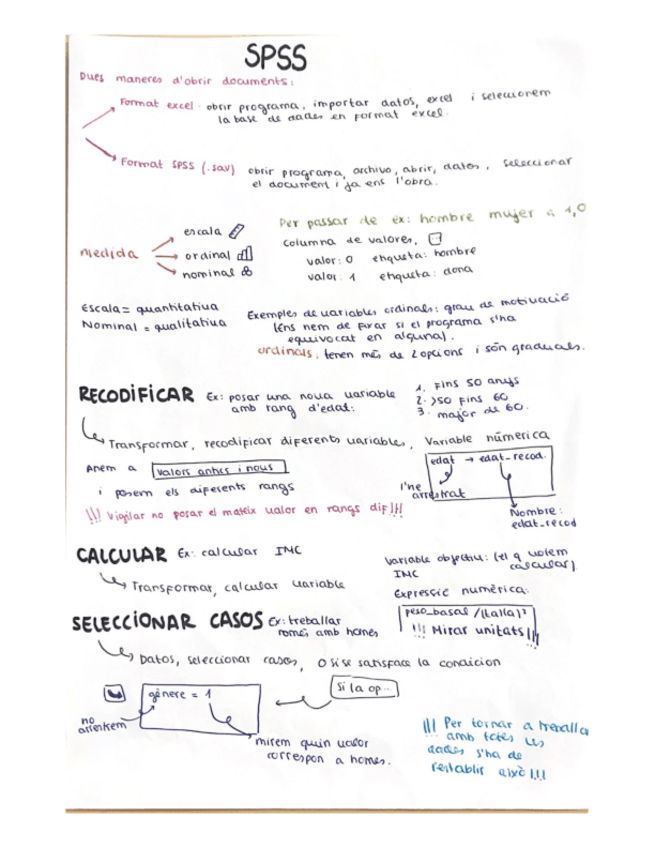 SPSS
Dues maneres d'obrir documents:
Format excel: obrir programa, importar datos, excel i seleccionem
la base de dades en format excel.
Format SPSS (.sav) obrir programa, archivo, abrir, datos, seleccionar
el document i ja ens l'obra.
Per passar de ex: hombre mujer a 1,0
medida
escala
ordinal
nominal
columna de valores,
valor: 0 etiqueta: hombre
valor: 1 etiqueta: dona
Escala = quantitativa
Nominal = qualitativa
Exemples de variables ordinals: grau de motivació
(Ens hem de fixar si el programa s'ha
equivocat en alguna).
ordinals: tenen més de 2 opcions i són graduals.
RECODIFICAR Ex: posar una nova variable
amb rang d'edat:
1. Fins 50 anys
2. >50 fins 60
3. major de 60.
Transformar, recodificar diferents variables, Variable númerica
Anem a valors antics i nous
i posem els diferents rangs
edat → edat_recod.
l'he
arrestrat
Nombre:
edat_recod
!!! Vigilar no posar el mateix valor en rangs dif!!!
CALCULAR Ex: calcular IMC
Transformar, calcular variable
Variable objectiu: (el q volem
calcular).
IMC
Expressió numèrica:
peso_basal /(talla)²
!!! Mirar unitats!!!
SELECCIONAR CASOS Ex: treballar
només amb homes
Datos, seleccionar casos, O Si se satisface la condicion
Si la op...
gènere = 1
no
arrestrem
mirem quin valor
correspon a homes.
!!! Per tornar a treballar
amb totes les
dades s'ha de
restablir això !!!